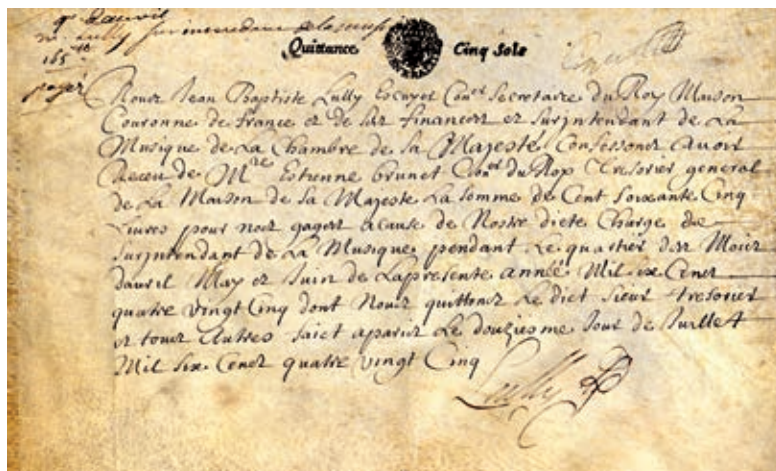 Mr Lully
165
payé
Quittance Cinq Sols
Nous Jean Baptiste Lully Escuyer Con.er Secretaire du Roy Maison
Couronne de france et de ses finances et Surjntendant de La
Musique de La Chambre de sa Majesté Confessons Avoir
Receu de Mre Estienne brunet Con.er du Roy Tresorier general
de La Maison de sa Majeste La somme de Cent Soixante Cinq
Livres pour nos gages acause de Nostre dicte Charge de
Surjntendant de La Musique pendant Le quartier des Mois
davril May et Juin de Lapresente année Mil six Cens
quatre vingt Cinq dont Nous quittons Le dict sieur tresorier
et tous Autres faict aparis Le douziesme Jour de Juillet
Mil six Cens quatre vingt Cinq
Lully